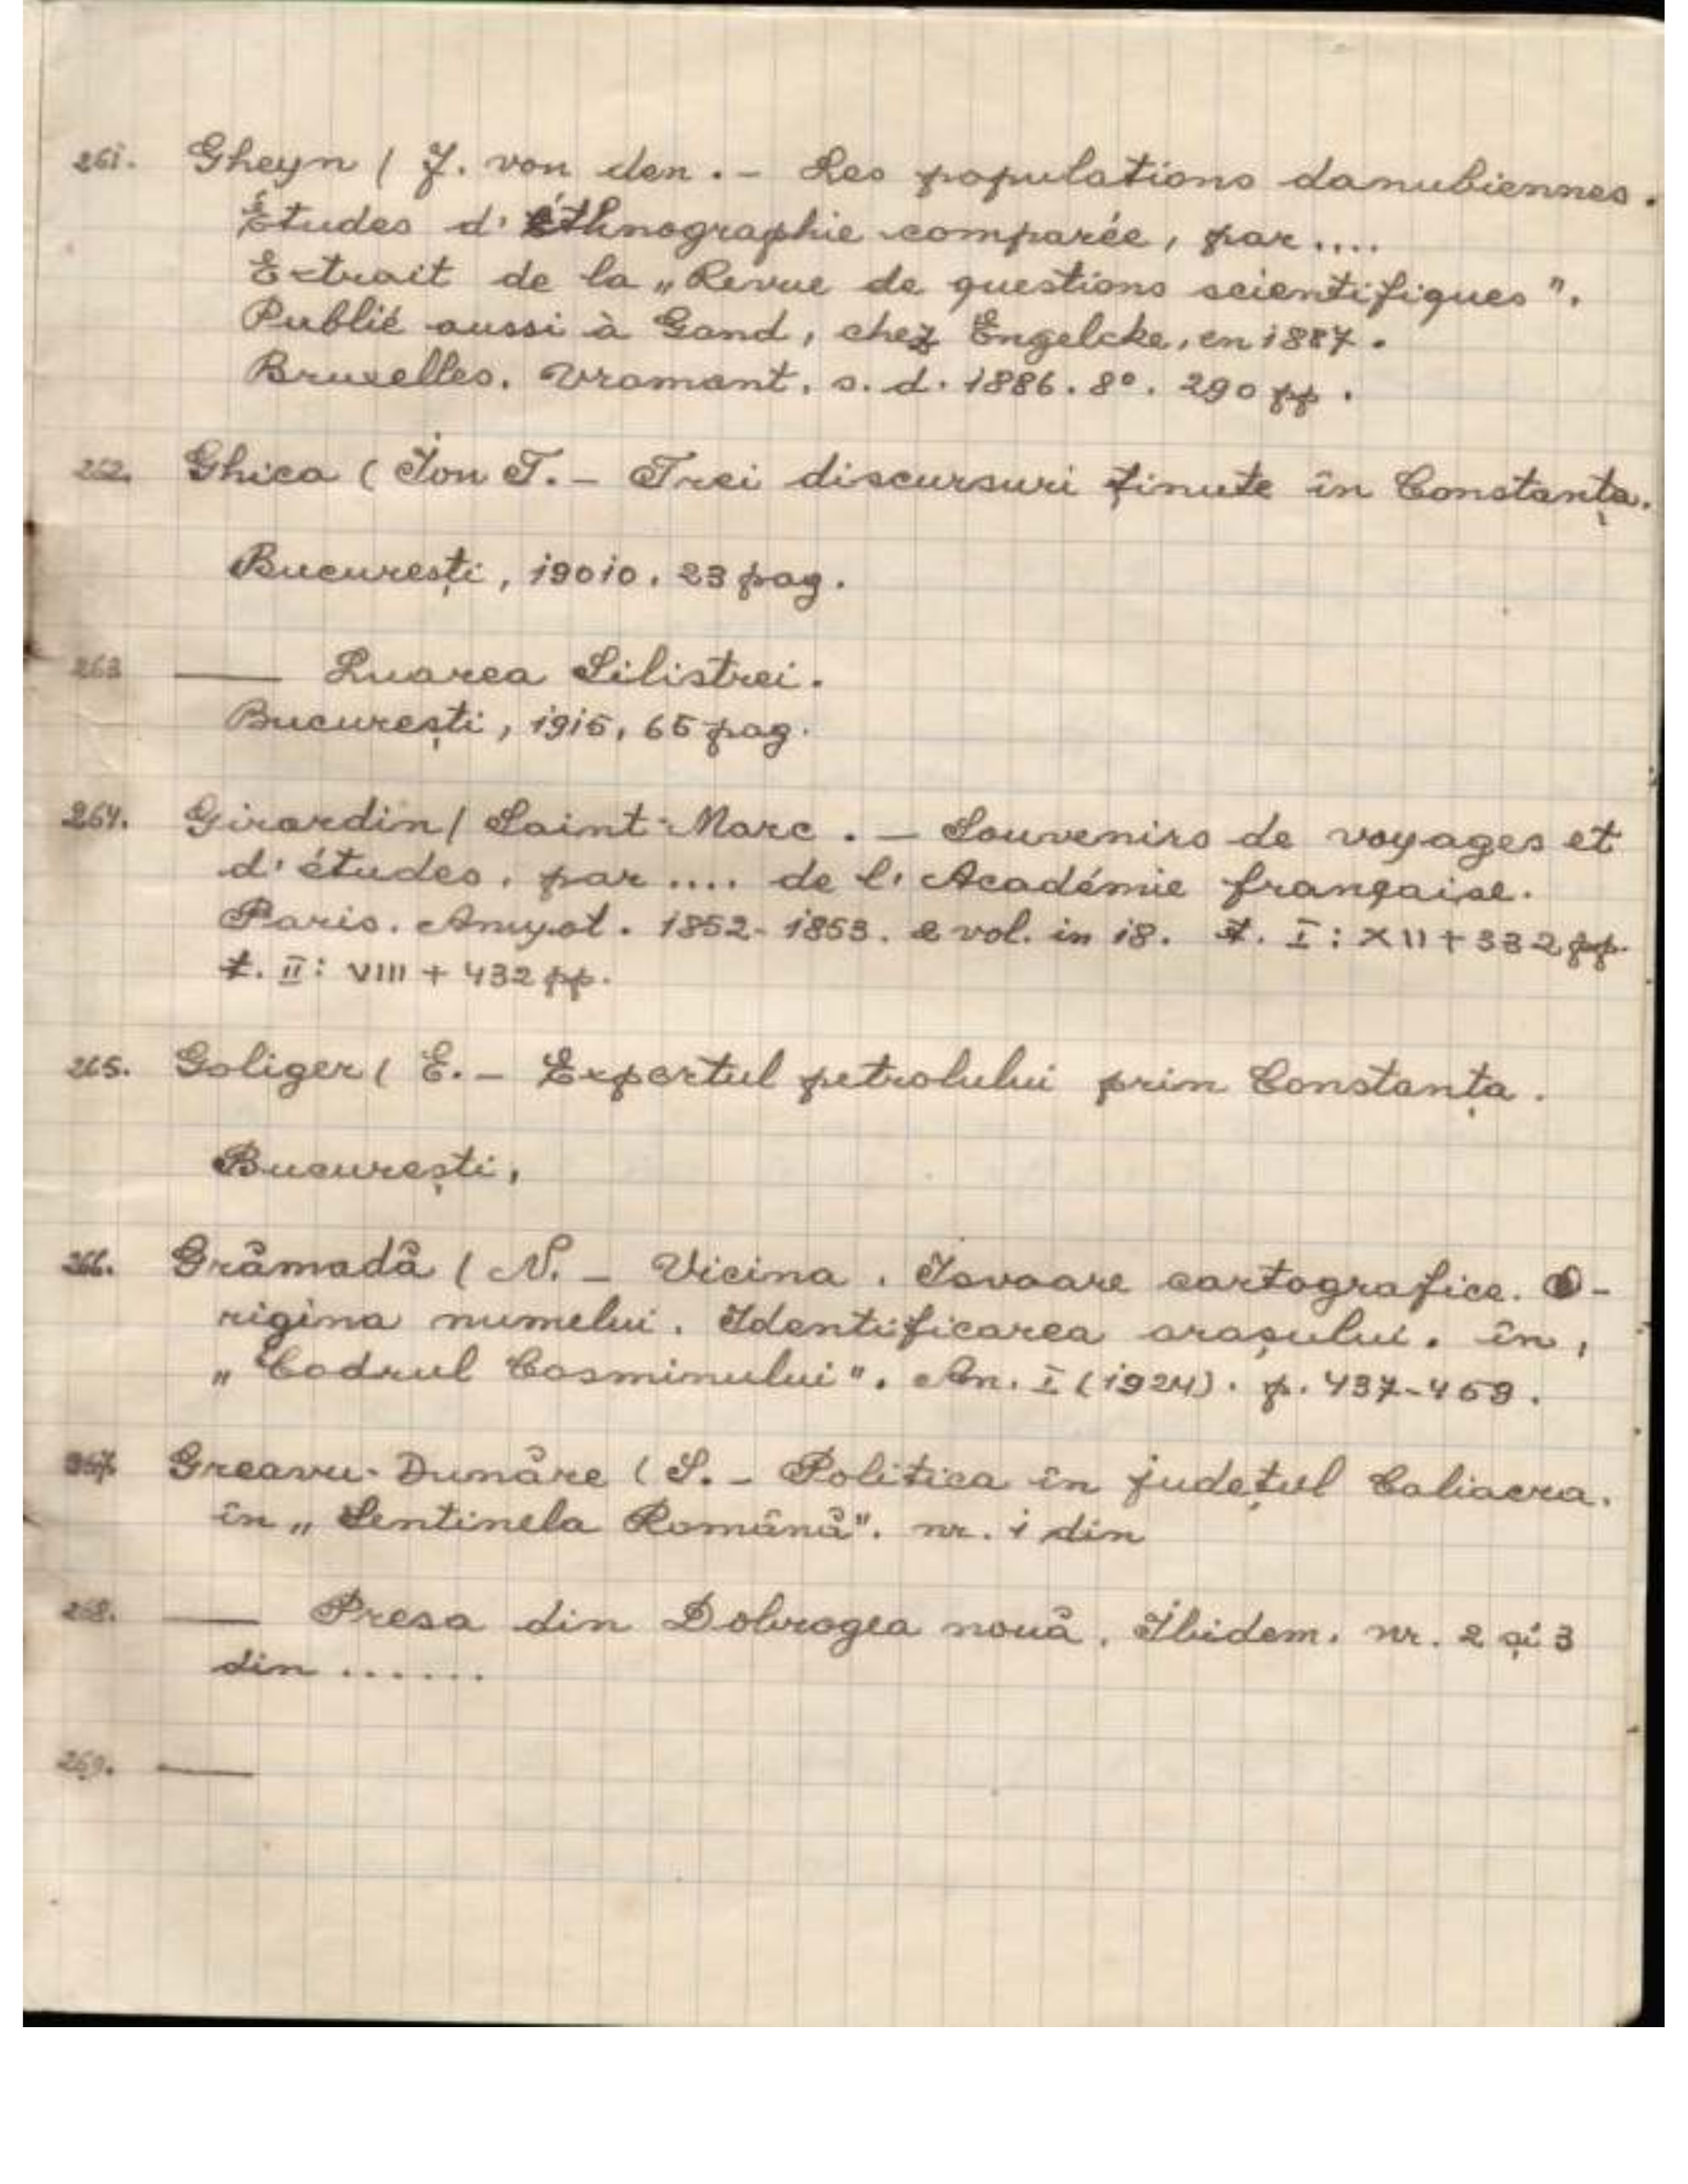 261. Gheyn ( J. von den . - Les populations danubiennes.
Études d'éthnographie comparée, par ....
Extrait de la „Revue de questions scientifiques".
Publié aussi à Gand, chez Engelcke, en 1887.
Bruxelles. Vromant. s. d. 1886. 8°. 290 pp.
262. Ghica ( Ion T. - Trei discursuri ținute în Constanța.
București, 19010. 23 pag.
263 — Luarea Silistrei.
București, 1915, 65 pag.
264. Girardin ( Saint-Marc . - Souvenirs de voyages et
d'études, par .... de l'Académie française.
Paris. Amyot. 1852-1853. 2 vol. in 18. t. I: XII + 332 pp.
t. II: VIII + 432 pp.
265. Goliger ( E. - Exportul petrolului prin Constanța.
București,
266. Grămadă ( N. - Vicina. Isvoare cartografice. O-
rigina numelui. Identificarea orașului. în,
„Codrul Cosminului". An. I (1924). p. 437-459.
267. Greavu-Dunăre ( S. - Politica în județul Caliacra.
în „Sentinela Română". nr. 1 din
268. — Presa din Dobrogea nouă. Ibidem. nr. 2 și 3
din ......
269. —